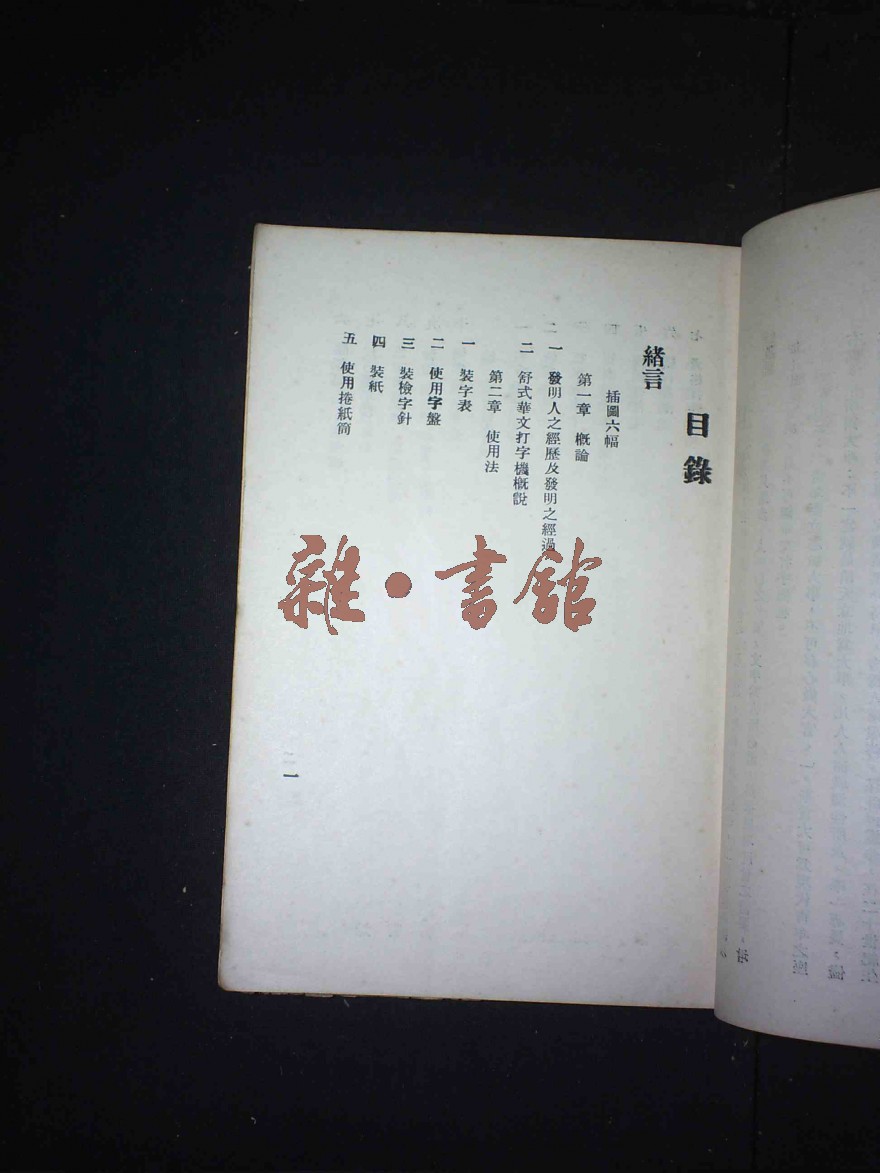 目錄
緒言
插圖六幅
第一章 概論
一 發明人之經歷及發明之經過
二 舒式華文打字機概說
第二章 使用法
一 裝字表
二 使用字盤
三 裝檢字針
四 裝紙
五 使用捲紙筒
一
雜·書館